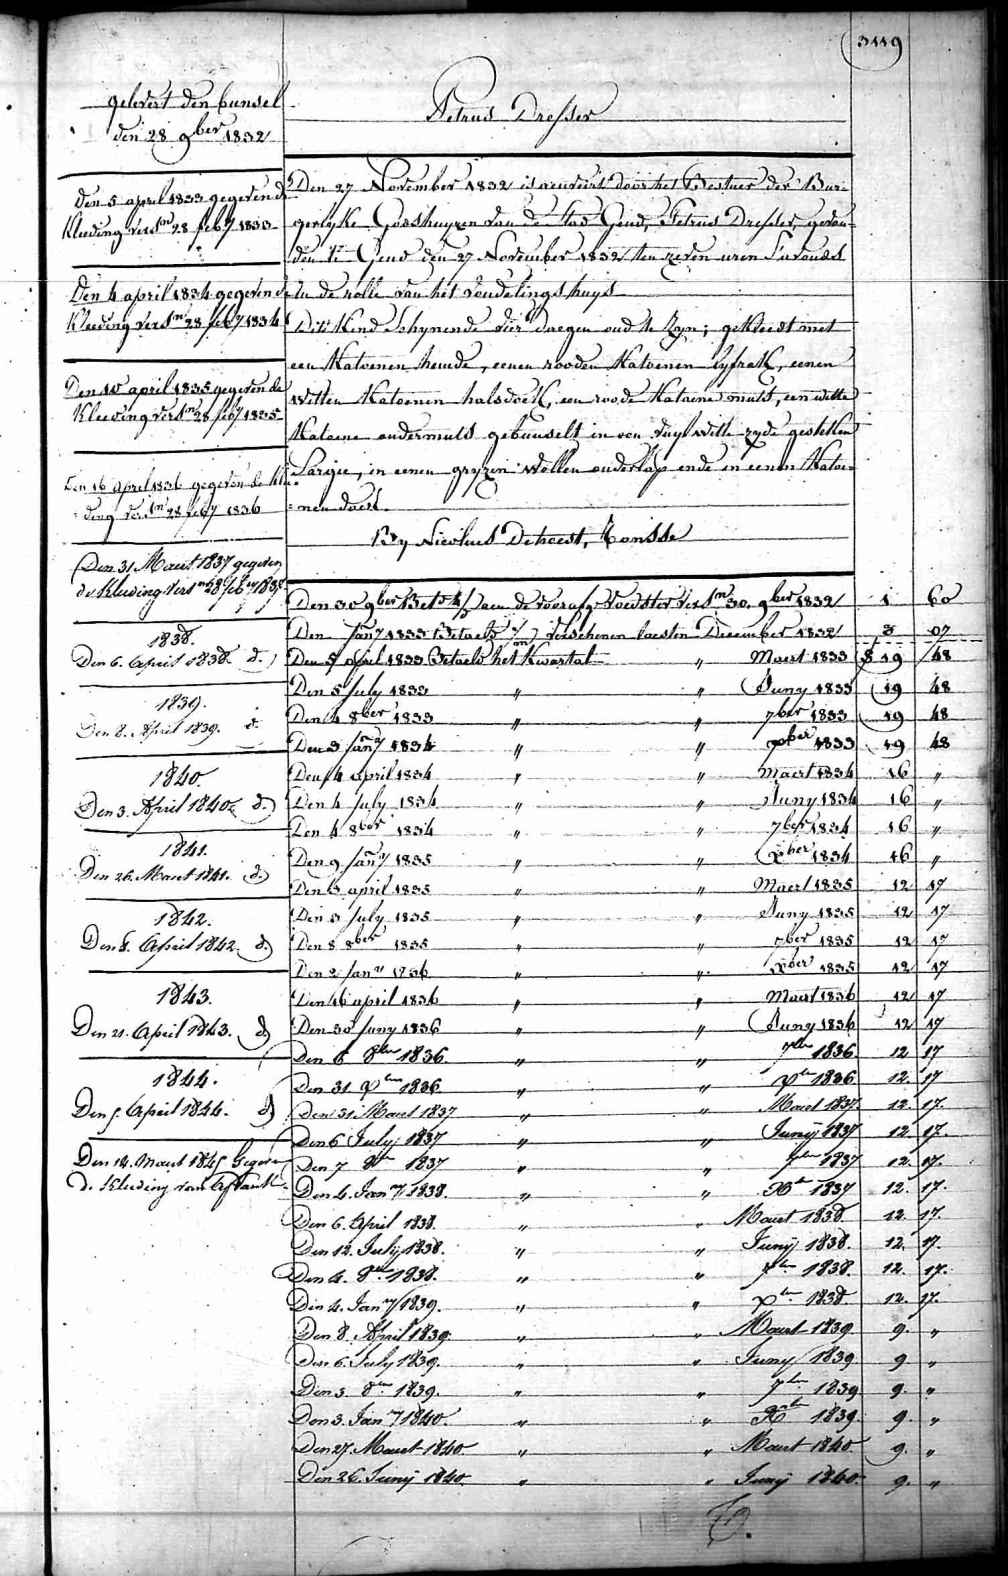 3119
gelevert den bunsel
den 28 9ber 1832
den 5 april 1833 gegeven de
Kleeding versn 28 feby 1833
Den 4 april 1834 gegeven de
Kleeding versn 28 feby 1834
Den 10 april 1835 gegeven de
Kleeding versn 28 feby 1835
Den 16 april 1836 gegeven de Klee-
ding versn 28 feby 1836
Den 31 Maert 1837 gegeven
de Kleeding versn 28 feby
1838.
Den 6. April 1838. d.
1839.
Den 8. April 1839. d.
1840.
Den 3. April 1840. d.
1841.
Den 26. Maert 1841. d.
1842.
Den 8. April 1842. d.
1843.
Den 21. April 1843. d.
1844.
Den 5. April 1844. d.
Den 12. Maert 1845 Gegeven
de Kleeding van
Petrus Dresser
Den 27 November 1832 is door het Bestuer der Bur-
gerlyke Godshuyzen van de Stad Gend, Petrus Dresser, gevon-
den te Gend den 27 November 1832 ten zeven uren s'avonds
in de rolle van het vondelingshuys
Dit Kind schynende vier daegen oud te zyn; gekleedt met
een Katoenen hemde, eenen rooden Katoenen lyfrok, eenen
Witten Katoenen halsdoek, een roode Katoene muts, een witte
Katoene ondermuts gebunselt in een witte zyde gestekten
Sargie, in eenen gryzen Wollen onderlap ende in eenen Katoe-
nen doek.
By Nicolaes Dehoest, Ronsse
Den 30 9ber Betaelt aen de voorafge voedster versn 30. 9ber 1832 1 60
Den Jany 1833 Betaelt verschenen laesten December 1832 3 07
Den 5 april 1833 Betaelt het Kwartal " Maert 1833 19 48
Den 5 July 1833 " " Juny 1833 19 48
Den 4 8ber 1833 " " 7ber 1833 19 48
Den 3 Jany 1834 " " Xber 1833 19 48
Den 4 april 1834 " " Maert 1834 16 "
Den 4 July 1834 " " Juny 1834 16 "
Den 4 8ber 1834 " " 7ber 1834 16 "
Den 9 Jany 1835 " " Xber 1834 16 "
Den 3 april 1835 " " Maert 1835 12 17
Den 3 July 1835 " " Juny 1835 12 17
Den 8 8ber 1835 " " 7ber 1835 12 17
Den 2 Jany 1836 " " Xber 1835 12 17
Den 16 april 1836 " " Maert 1836 12 17
Den 30 Juny 1836 " " Juny 1836 12 17
Den 6 8ber 1836 " " 7ber 1836 12 17
Den 31 Xber 1836 " " Xber 1836 12. 17
Den 31 Maert 1837 " " Maert 1837. 12. 17.
Den 6 July 1837 " " Junij 1837 12 17.
Den 7 8ber 1837 " " 7ber 1837 12. 17.
Den 4. Jany 1838. " " Xber 1837 12. 17.
Den 6. April 1838. " " Maert 1838. 12. 17.
Den 12. July 1838. " " Junij 1838. 12. 17.
Den 4. 8ber 1838. " " 7ber 1838. 12. 17.
Den 4. Jany 1839. " " Xber 1838 12. 17.
Den 8. April 1839. " " Maert 1839 9. "
Den 6. July 1839. " " Juny 1839 9 "
Den 3. 8ber 1839. " " 7ber 1839 9. "
Den 3. Jany 1840. " " Xber 1839 9. "
Den 27. Maert 1840 " " Maert 1840 9. "
Den 26. Junij 1840. " " Junij 1840. 9. "